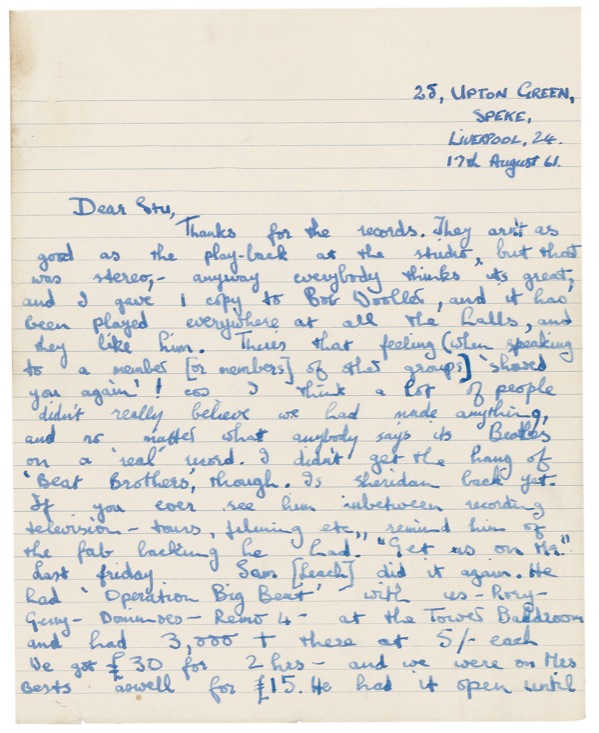 25, UPTON GREEN,
SPEKE,
LIVERPOOL, 24.
17th August 61.
Dear Stu,
Thanks for the records. They arn't as
good as the play-back at the studio, but that
was stereo,- anyway everybody thinks its great,
and I gave 1 copy to Bob Wooller, and it has
been played everywhere at all the halls, and
they like him. Theres that feeling (when speaking
to a member [or members] of other groups) 'shoved
you again'! cos I think a lot of people
didn't really believe we had made anything,
and no matter what anybody says its Beatles
on a 'real' record. I didn't get the hang of
'Beat Brothers', through. Is sheridan back yet.
If you ever see him inbetween recording
television - tours, filming etc,, remind him of
the fab backing he had. "Get us on Mr."
Last friday Sam [Leach] did it again. He
had 'Operation Big Beat' - with us - Rory -
Gerry - Dominoes - Remo 4 - at the Tower Balldroom
and had 3,000 + there at 5/- each
We got £30 for 2 hrs - and we were on Mrs
Bests aswell for £15. He had it open until